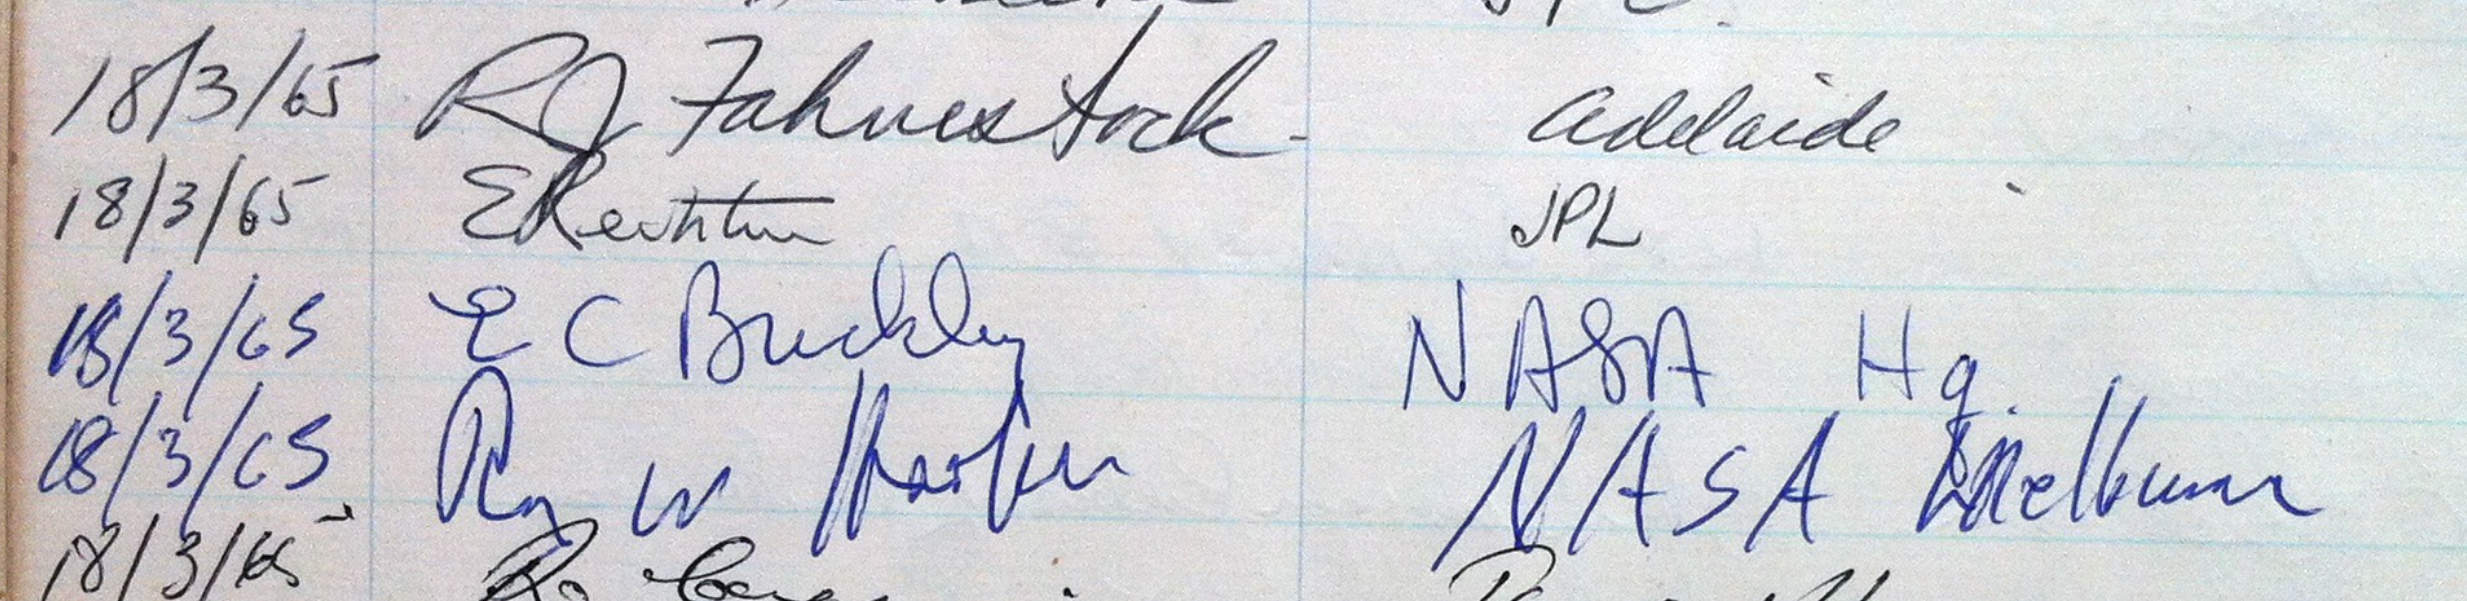 18/3/65 RJ Fahnestock - Adelaide
18/3/65 E Rechtin JPL
18/3/65 E C Buckley NASA Hq.
18/3/65 Ray W NASA Melbourne
18/3/65